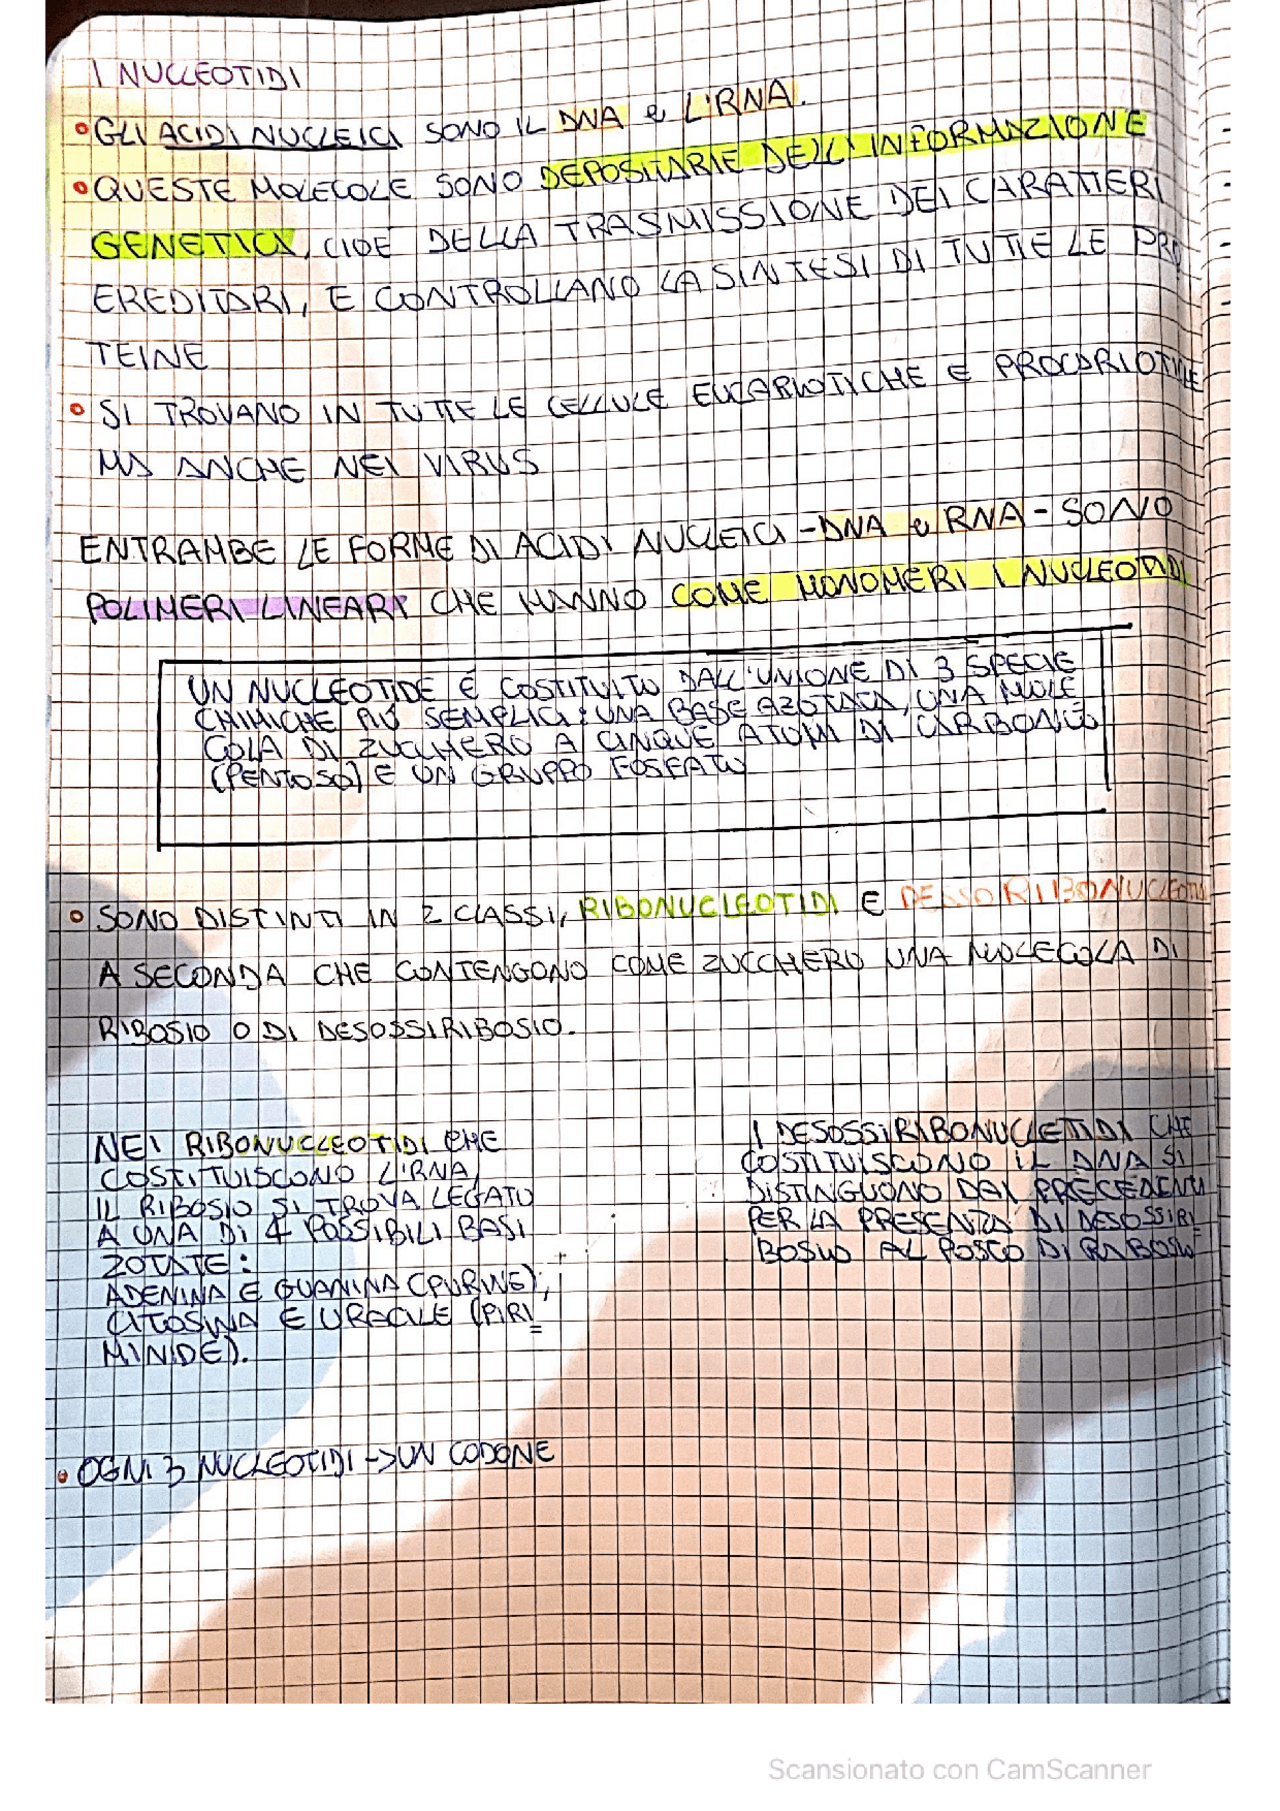 I NUCLEOTIDI
GLI ACIDI NUCLEICI SONO IL DNA e L'RNA.
QUESTE MOLECOLE SONO DEPOSITARIE DELL'INFORMAZIONE
GENETICA, CIOÈ DELLA TRASMISSIONE DEI CARATTERI
EREDITARI, E CONTROLLANO LA SINTESI DI TUTTE LE PRO
TEINE
SI TROVANO IN TUTTE LE CELLULE EUCARIOTICHE E PROCARIOTICHE
MA ANCHE NEI VIRUS
ENTRAMBE LE FORME DI ACIDI NUCLEICI - DNA e RNA - SONO
POLIMERI LINEARI CHE HANNO COME MONOMERI I NUCLEOTIDI
UN NUCLEOTIDE È COSTITUITO DALL'UNIONE DI 3 SPECIE
CHIMICHE PIÙ SEMPLICI: UNA BASE AZOTATA, UNA MOLE
COLA DI ZUCCHERO A CINQUE ATOMI DI CARBONIO
(PENTOSO) E UN GRUPPO FOSFATO
SONO DISTINTI IN 2 CLASSI, RIBONUCLEOTIDI E DESSORIBONUCLEOTIDI
A SECONDA CHE CONTENGONO COME ZUCCHERO UNA MOLECOLA DI
RIBOSIO O DI DESOSSIRIBOSIO.
NEI RIBONUCLEOTIDI CHE
COSTITUISCONO L'RNA,
IL RIBOSIO SI TROVA LEGATO
A UNA DI 4 POSSIBILI BASI
ZOTATE:
ADENINA E GUANINA (PURINE),
CITOSINA E URACILE (PIRI
MINIDE).
I DESOSSIRIBONUCLETIDI CHE
COSTITUISCONO IL DNA SI
DISTINGUONO DAI PRECEDENTI
PER LA PRESENZA DI DESOSSIRI
BOSIO AL POSTO DI RIBOSIO
OGNI 3 NUCLEOTIDI -> UN CODONE
Scansionato con CamScanner